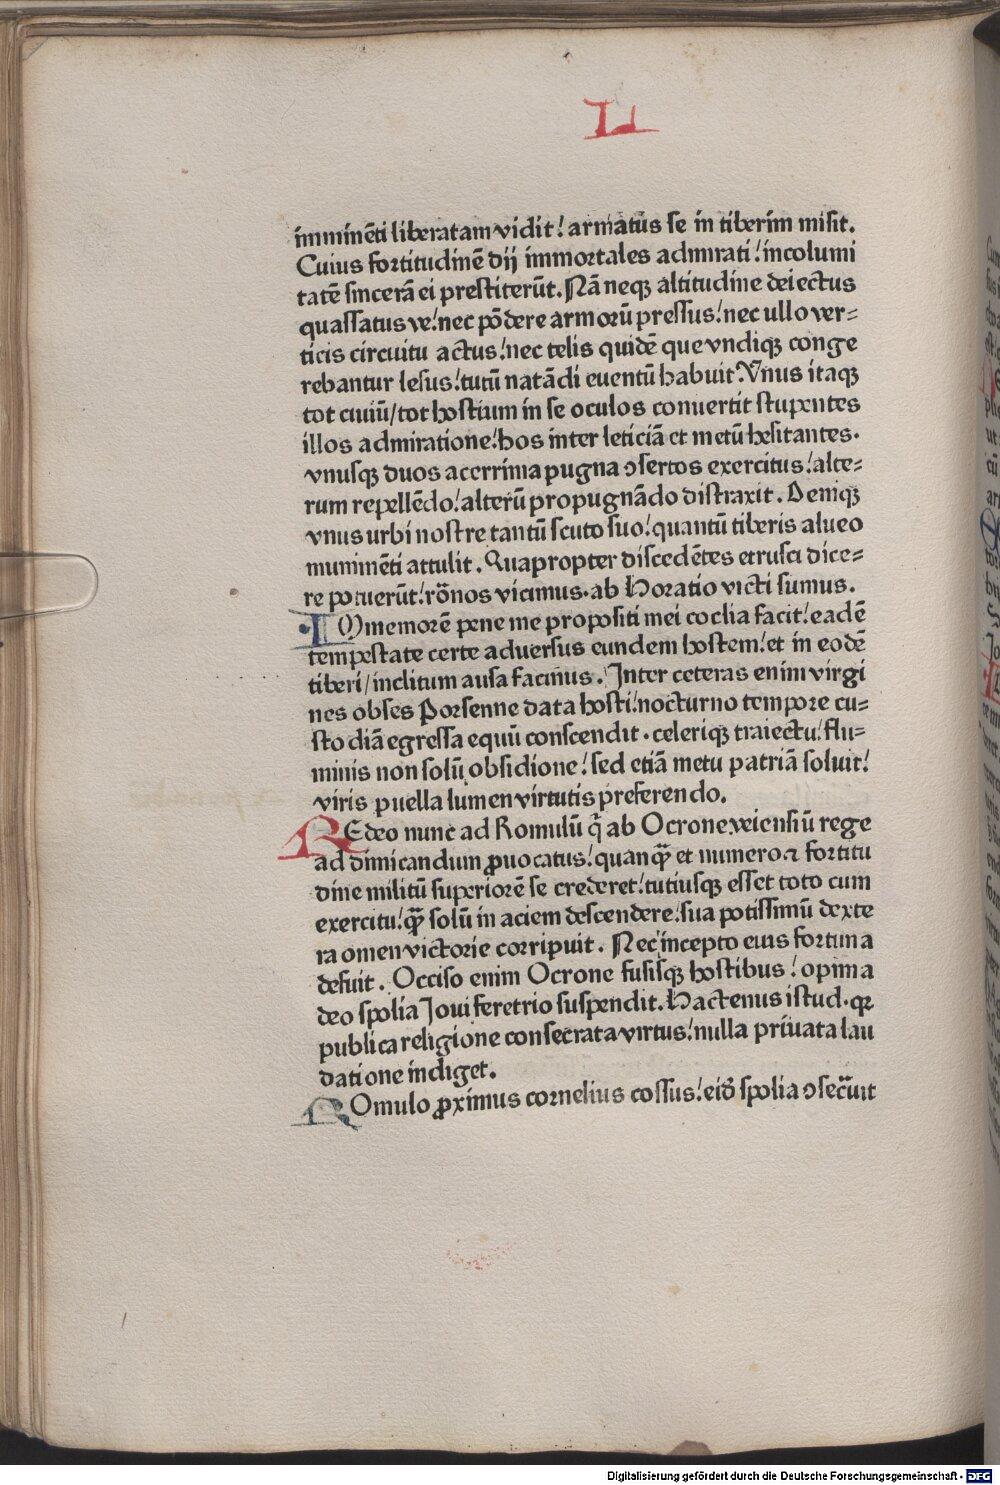 L
imminēti liberatam vidit! armatus se in tiberim misit.
Cuius fortitudinē dij immortales admirati! incolumi
tatē sincerā ei prestiterūt. Nā neqꝫ altitudine deiectus
quassatus ve! nec pōdere armorū pressus! nec ullo ver⸗
ticis circuitu actus! nec telis quidē que vndiqꝫ conge
rebantur lesus! tutū natādi euentū habuit. Vnus itaqꝫ
tot ciuiū/ tot hostium in se oculos conuertit stupentes
illos admiratione! hos inter leticiā et metū hesitantes.
vnusqꝫ duos acerrima pugna ↄsertos exercitus! alte⸗
rum repellēdo! alterū propugnādo distraxit. Deniqꝫ
vnus urbi nostre tantū scuto suo! quantū tiberis alueo
munimēti attulit. Quapropter discedētes etrusci dice⸗
re potuerūt! rōnos vicimus. ab Horatio victi sumus.
IMmemorē pene me propositi mei coclia facit! eadē
tempestate certe aduersus eundem hostem! et in eodē
tiberi/ inclitum ausa facinus. Inter ceteras enim virgi
nes obses Porsenne data hosti! nocturno tempore cu⸗
stodiā egressa equū conscendit. celeriqꝫ traiectu! flu⸗
minis non solū obsidione! sed etiā metu patriā soluit!
viris puella lumen virtutis preferendo.
REdeo nunc ad Romulū q̄ ab Ocrone veiensiū rege
ad dimicandum ꝓuocatus! quanqꝫ̄ et numero ⁊ fortitu
dine militū superiorē se crederet! tutiusqꝫ esset toto cum
exercitu! qꝫ̄ solū in aciem descendere! sua potissimū dexte
ra omen victorie corripuit. Nec incepto eius fortuna
defuit. Occiso enim Ocrone fusisqꝫ hostibus! opima
deo spolia Ioui feretrio suspendit. Hactenus istud. qꝛ
publica religione consecrata virtus! nulla priuata lau
datione indiget.
ROmulo ꝓximus cornelius cossus! eidē spolia ↄsecuit
Digitalisierung gefördert durch die Deutsche Forschungsgemeinschaft - DFG